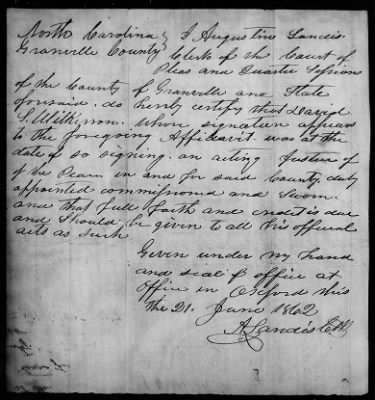 North Carolina } I Augustine Landis
Granville County } Clerk of the Court of
Pleas and Quarter Sessions
of the County of Granville and State
aforesaid. do hereby certify that David
S. whose signature appears
to the foregoing Affidavit was at the
date of so signing. an acting Justice of
of the Peace in and for said County, duly
appointed commissioned and Sworn.
and that full faith and credit is due
and Should be given to all his official
acts as such
Given under my hand
and seal of office at
office in Oxford this
the 21. June 1862
A Landis